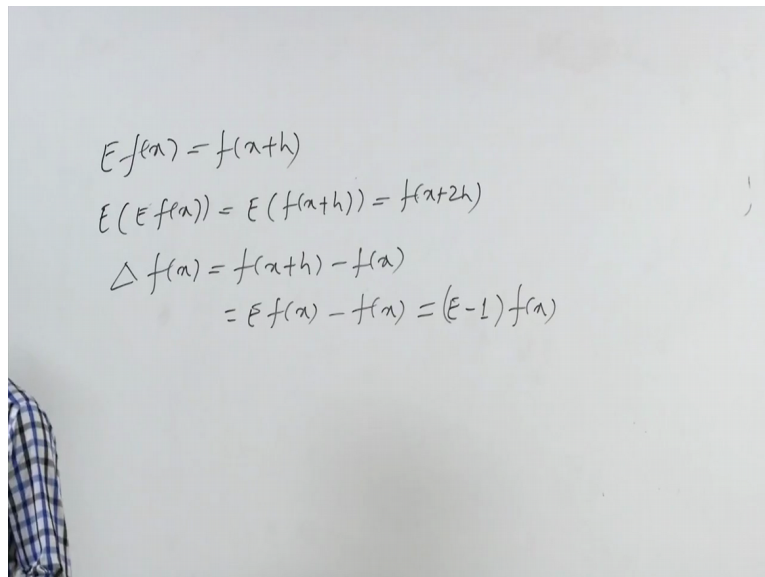 E f(x) = f(x+h)
E(E f(x)) = E(f(x+h)) = f(x+2h)
Δ f(x) = f(x+h) - f(x)
= E f(x) - f(x) = (E-1) f(x)